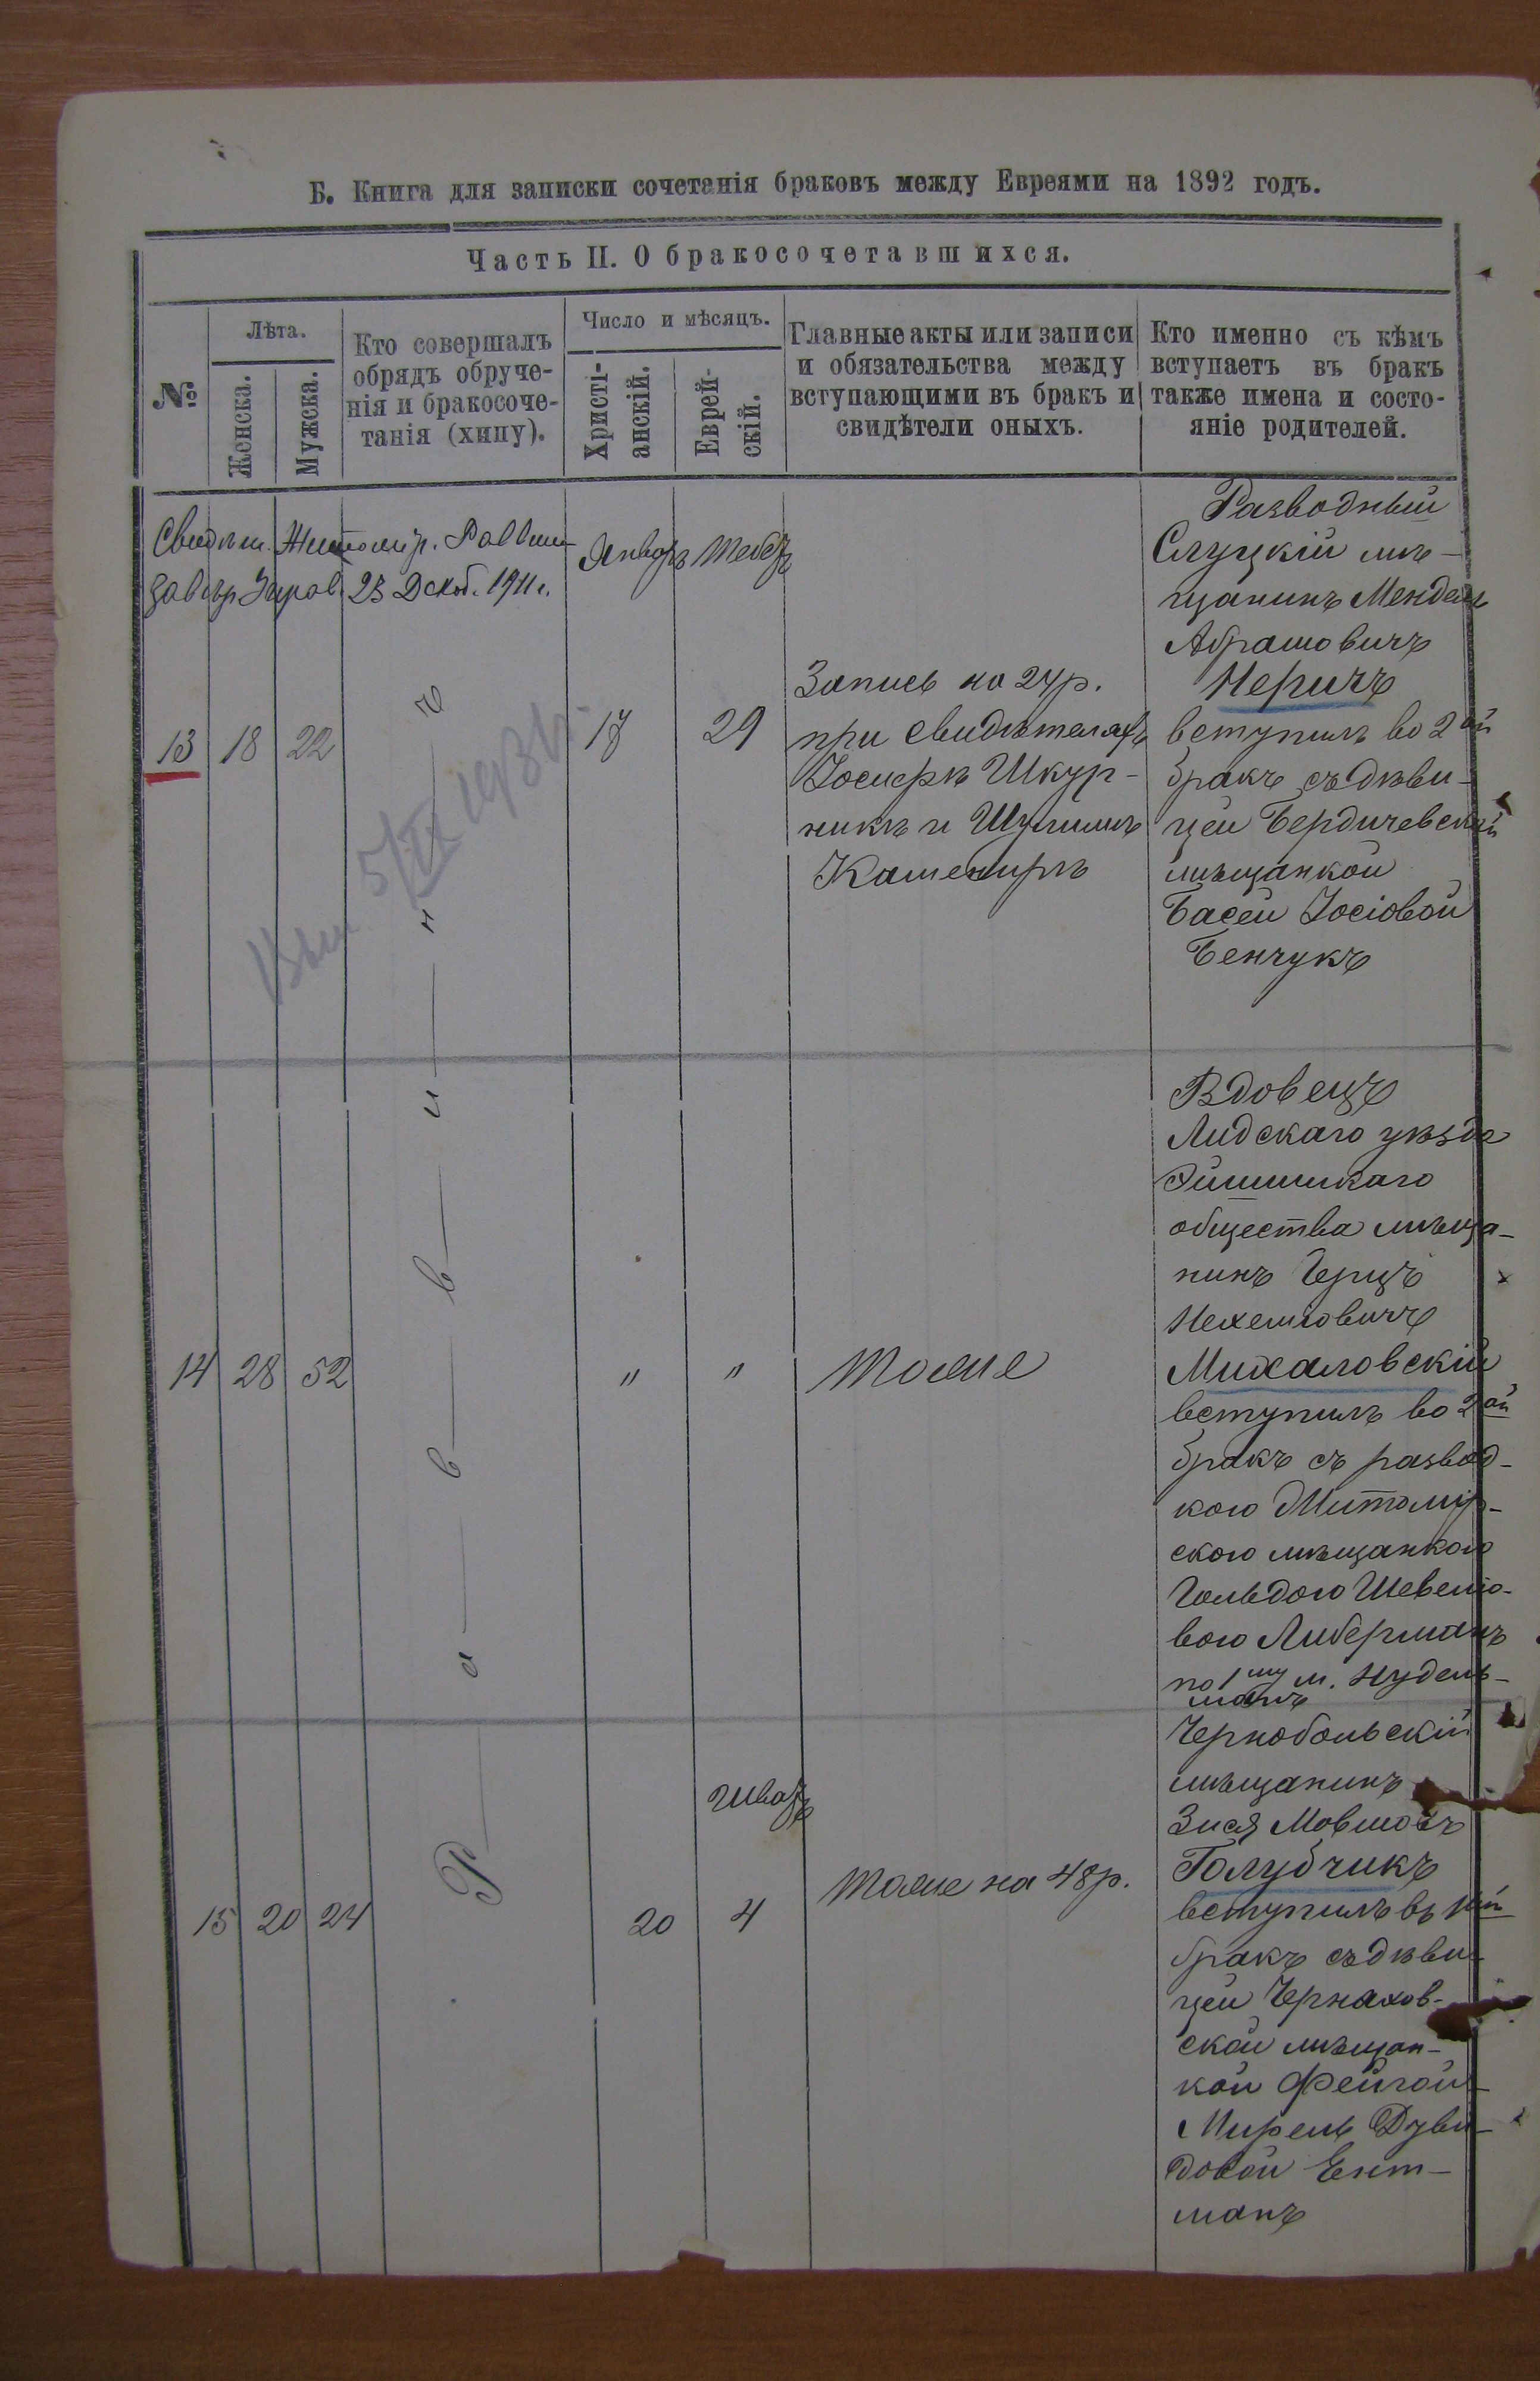 Б. Книга для записки сочетанія браковъ между Евреями на 1892 годъ.
Часть II. О бракосочетавшихся.
№
Лѣта.
Женска.
Мужска.
Кто совершалъ
обрядъ обруче-
нія и бракосоче-
танія (хипу).
Число и мѣсяцъ.
Христі-
анскій.
Еврей-
скій.
Главные акты или записи
и обязательства между
вступающими въ бракъ и
свидѣтели оныхъ.
Кто именно съ кѣмъ
вступаетъ въ бракъ
также имена и состо-
яніе родителей.
Свидѣт. Житомір. Раввин
23 Декаб. 1911 г.
Январь
Тебетъ
13
18
22
17
29
Запись на 24 р.
при свидѣтеляхъ
Іосифѣ Шкур-
никъ и Шулимъ
Камениръ
Разводный
Слуцкій мѣ-
щанинъ Мендель
Абрамовичъ
Неричъ
вступилъ во 2ой
бракъ съ дѣви-
цей Бердичевской
мѣщанкой
Басей Іосіовой
Бенчукъ
5/IX 1931
14
28
52
"
"
Тоже
Вдовецъ
Лидскаго уѣзда
Эйшишкаго
общества мѣща-
нинъ Герцъ
Нехеміовичъ
Михаловскій
вступилъ во 2ой
бракъ съ развод-
кою Житомір-
скою мѣщанкою
Гольдою Шевеліо-
вою Либерманъ
по 1му м. Нудель-
манъ
15
20
24
20
Шватъ
4
Тоже на 48 р.
Чернобольскій
мѣщанинъ
Зися Мовшовъ
Голубчикъ
вступилъ въ 1ый
бракъ съ дѣви-
цей Черняхов-
ской мѣщан-
кой Фейгой-
Мирель Дуви-
довой Ент-
манъ
Р—а—в—в—и—н—ъ